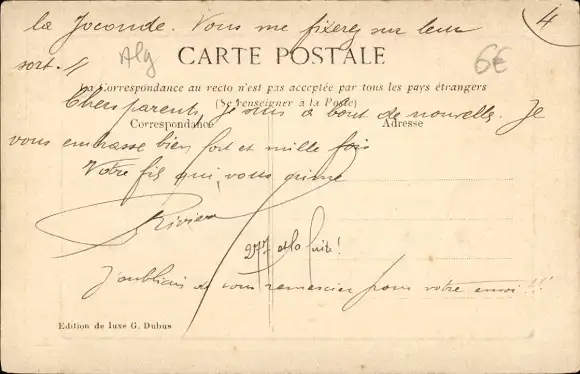 la Joconde. Vous me fixerez sur leur
4
sort. //
Alg
CARTE POSTALE
6€
La Correspondance au recto n'est pas acceptée par tous les pays étrangers
(Se renseigner à la Poste)
Chers parents, je suis à bout de nouvelles. Je
Correspondance
Adresse
vous embrasse bien fort et mille fois
Votre fils qui vous aime
Rivière
et la suite!
J'oubliais de vous remercier pour votre envoi!!!
Edition de luxe G. Dubus